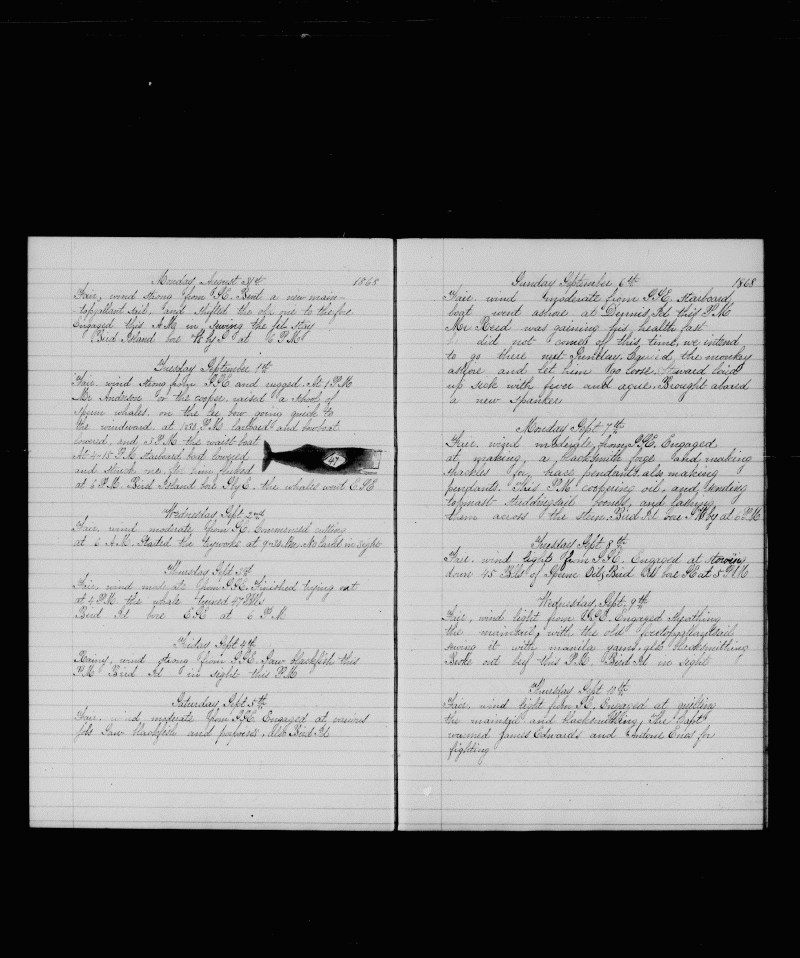 Monday August 31th 1868
Fair, wind strong from S.S.E. Bent a new main-
topgallant sail, and shifted the old one to the fore
Engaged this A.M. in the fib stay
Bird Island bore by S at 6 P.M.
Tuesday September 1th
Fair, wind strong from S.S.E and rugged. At 1 P.M
Mr Anderson the cooper raised a school of
Sperm whales. on the lee bow going quick to
the windward at P.M. larboard and bowboat
lowered, and 3 P.M the waist boat
At 4-15 P.M starboard boat lowered
and struck one him fluked
47
at 6 P.M. Bird Island bore S by E. the whales went E.S.E
Wednesday Sept. 2nd
Fair, wind moderate from S.E. Commenced cutting
at 6 A.M. Started the tryworks at No land in sight
Thursday Sept 3th
Fair, wind moderate from S.S.E. Finished trying out
at 4 P.M. the whale turned 47 Bbls
Bird Id bore E.S.E at 6 P.M
Friday Sept 4th
Rainy, wind strong from S.S.E. Saw blackfish this
P.M Bird Id in sight this P.M
Saturday Sept 5th
Fair. wind moderate from S.S.E. Engaged at various
jobs Saw blackfish and porpoises. also Bird Id
Sunday September 6th 1868
Fair. wind moderate from S.S.E, starboard
boat went ashore at Dennis Id this P.M
Mr Reed was gaining his health fast
did not come off this time, we intend
to go there next Sunday. the monkey
ashore and let him go loose. Steward laid
up sick with fever and ague. Brought aboard
a new spanker
Monday Sept 7th
Fair. wind moderate from S.S.E. Engaged
at making a blacksmith forge and making
shackles for brace pendants. also making
pendants. This P.M. coopering oil, and sending
topmast studdingsail booms, and lashing
them across the stern. Bird Id bore by at 6 P.M
Tuesday Sept 8th
Fair. wind light from S.S.E. Engaged at stowing
down 45 Bbls of Sperm Oil, Bird Id bore S.E at 5 P.M
Wednesday Sept. 9th
Fair, wind light from S.S.E. Engaged Sheathing
the mainsail, with the old foretopgallantsail
sewing it with manila yarn, also blacksmithing
Broke out beef this P.M. Bird Id in sight
Thursday Sept 10th
Fair. wind light from S.E, Engaged at quilting
the mainsail and blacksmithing, The Capt
warned James Edwards and Antone Enos for
fighting